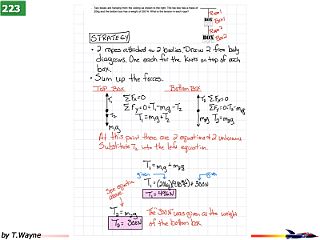 223
Two boxes are hanging from the ceiling as shown to the right. The top box has a mass of
20kg and the bottom box has a weight of 300 N. What is the tension in each rope?
Rope 1
BOX Box 1
Rope 2
BOX Box 2
STRATEGY
• 2 ropes attached to 2 bodies. Draw 2 free body
diagrams. One each for the forces on top of each
box.
• Sum up the forces.
Top Box
Bottom Box
T₁ ΣFx=0
ΣFy=0=T₁-m₁g-T₂
T₁=m₁g+T₂
T₂
m₁g
T₂ ΣFx=0
ΣFy=0=T₂-m₂g
m₂g T₂=m₂g
At this point there are 2 equations & 2 unknowns
Substitute T₂ into the low equation.
T₁=m₁g+m₂g
given
given
See equation
above
T₂=m₂g
T₂=300N
The 300N was given as the weight
of the bottom box
by T.Wayne